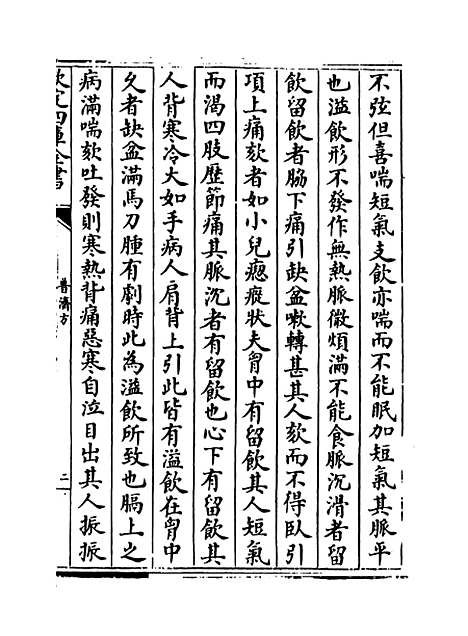 不弦但喜喘短氣支飲亦喘而不能眠加短氣其脈平
也溢飲形不發作無熱脈微煩滿不能食脈沉滑者留
飲留飲者脇下痛引缺盆嗽轉甚其人欬而不得臥引
項上痛欬者如小兒瘛瘲狀夫胷中有留飲其人短氣
而渴四肢歷節痛其脈沉者有留飲也心下有留飲其
人背寒冷大如手病人肩背上引此皆有溢飲在胷中
久者缺盆滿馬刀腫有劇時此為溢飲所致也膈上之
病滿喘欬吐發則寒熱背痛惡寒自泣目出其人振振
欽定四庫全書
普濟方
二